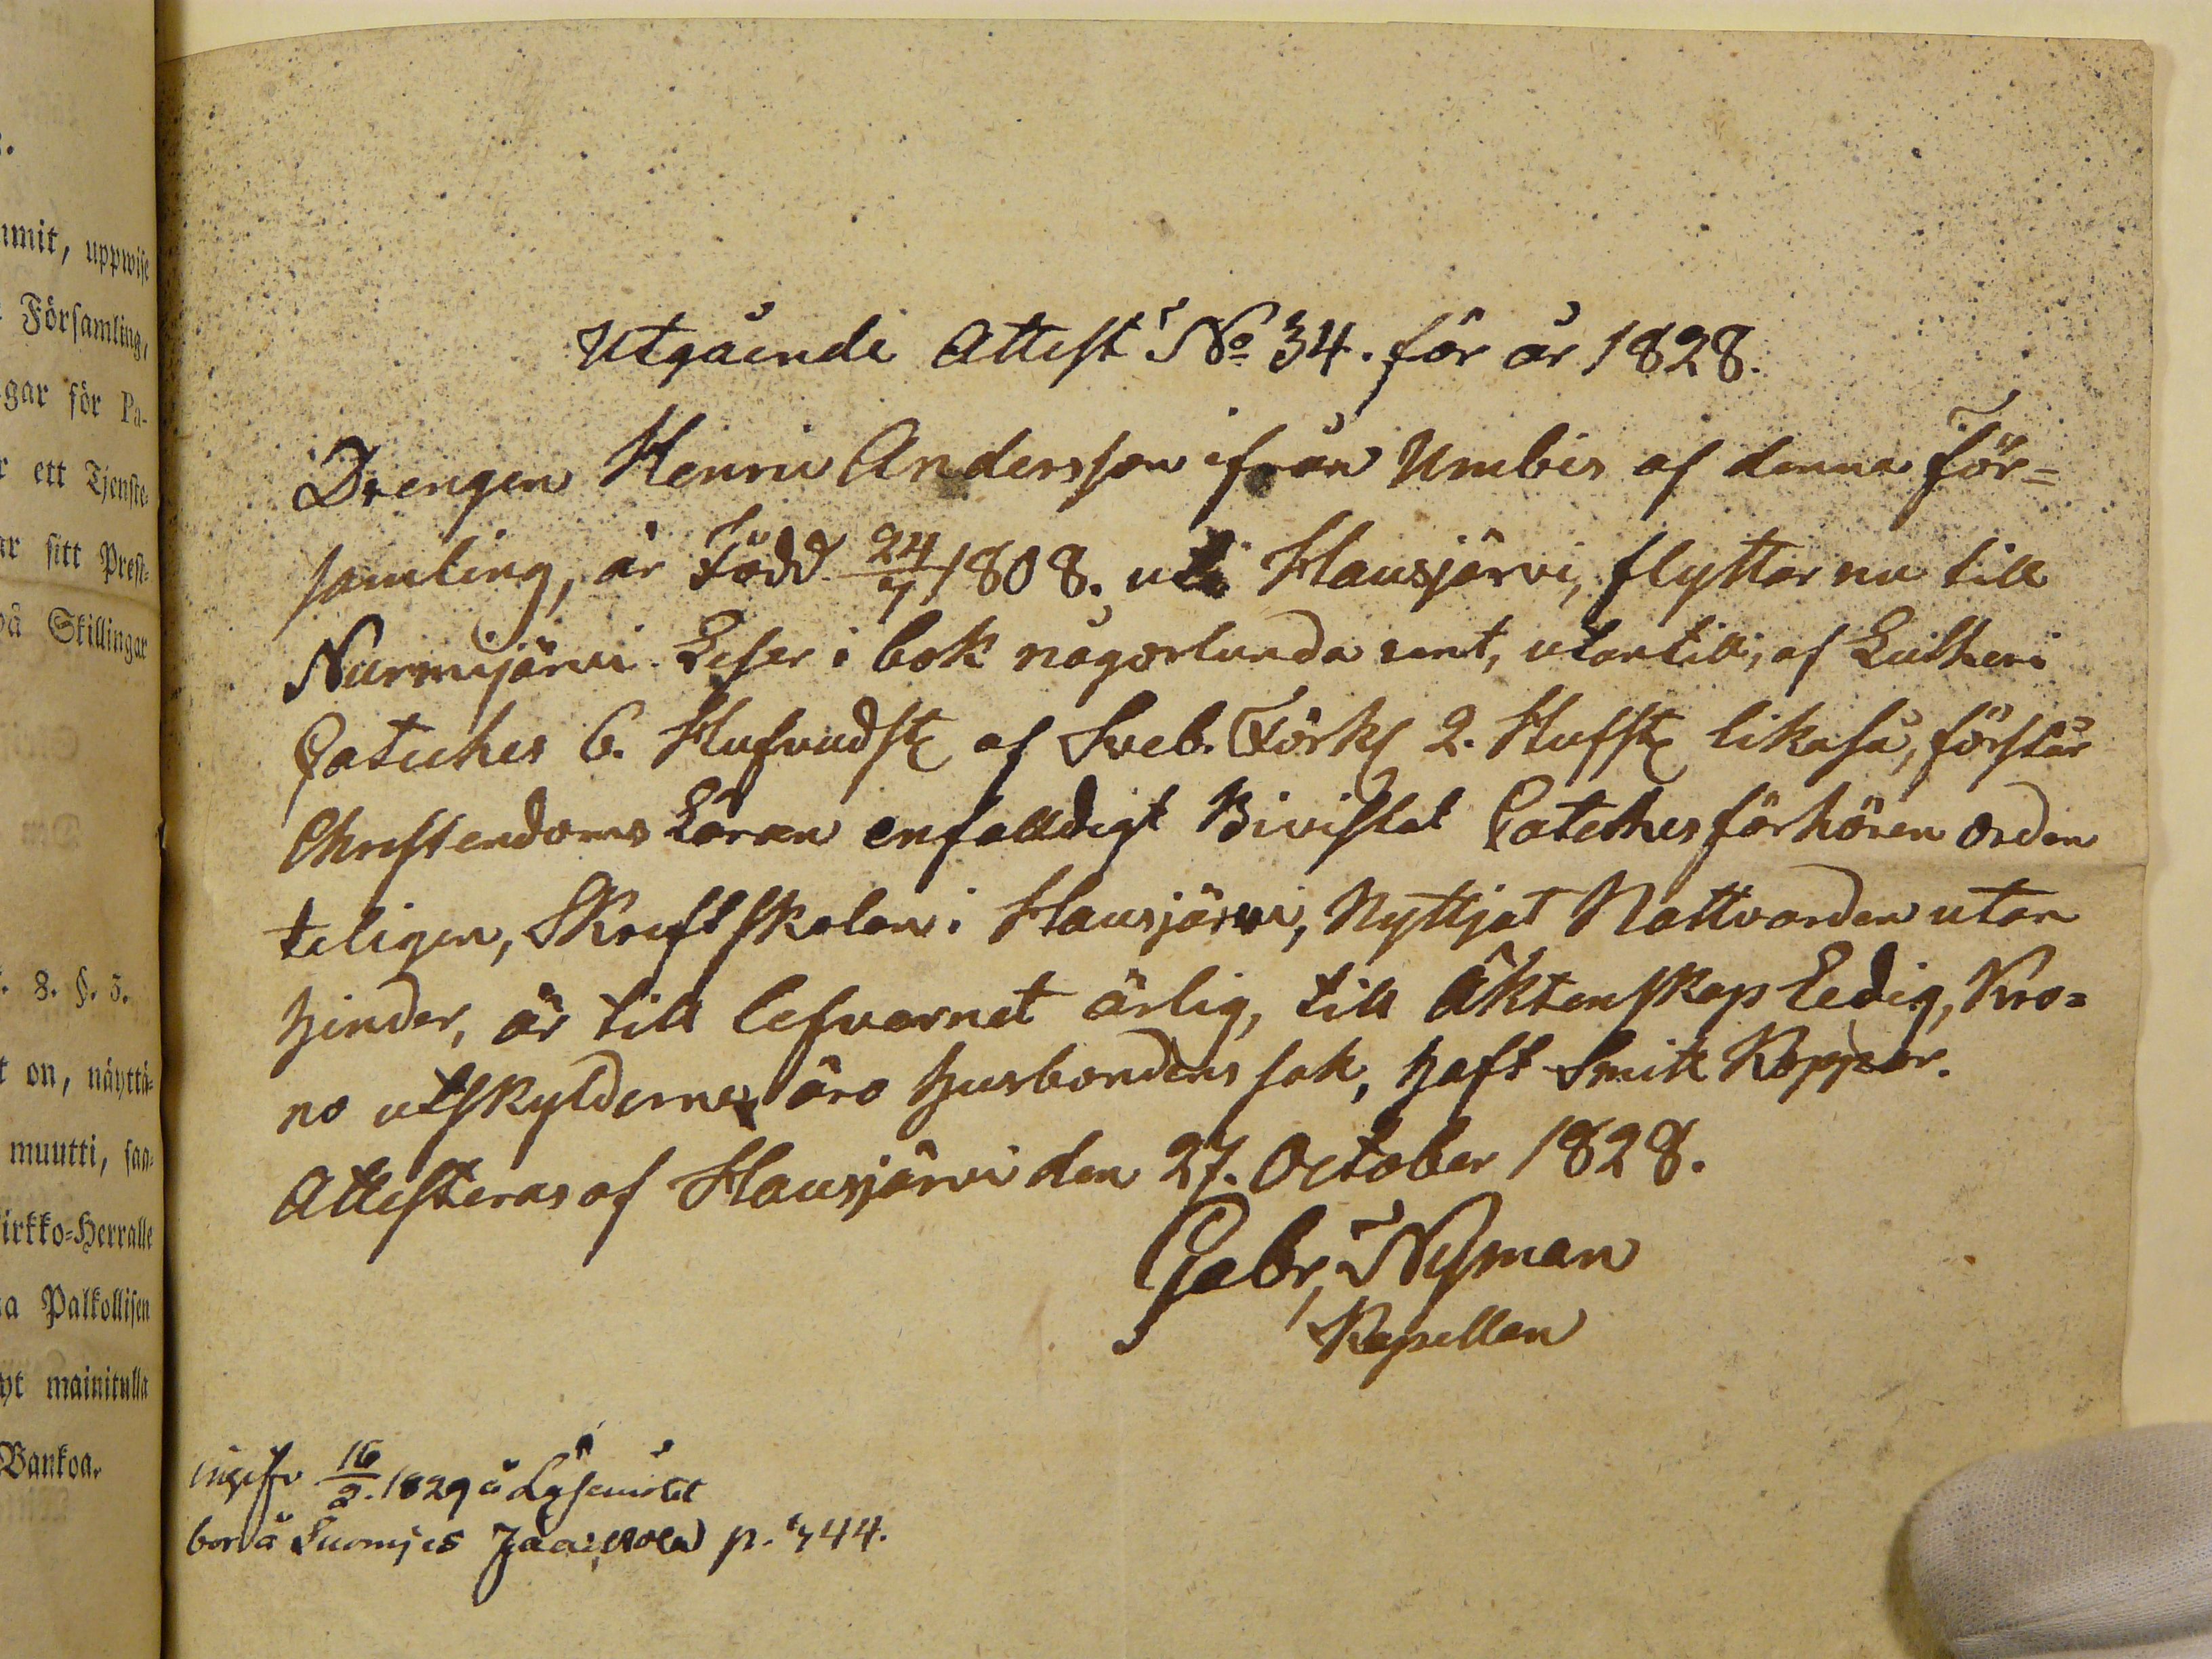 .
mmit, uppwise
Församling,
gar för Pa-
r ett Tjenste-
ar sitt Prest-
på Skillingar
. 8. §. 5.
t on, näyttä-
muutti, saa-
irkko-Herralle
a Palkollisen
yt mainitulla
Bankoa.
Utgående Attest No 34. för år 1828.
Drengen Henric Andersson ifrån Umbis af denna För=
samling, är Född 24/7 1808. uti Hausjärvi, flyttar nu till
Nurmijärvi. Leser i bok någorlunda rent, utantill, af Lutheri
Cateches 6. Hufvudst af Sveb. Förkl 2. Hufst likaså, förstår
Christendoms Läran enfalldigt Bivistat Catechesförhören orden
teligen, Skriftskolan i Hausjärvi, Nyttjat Nattvarden utan
hinder, är till lefvarnet ärlig, till Äktenskap Ledig, Kro=
no utskylderne äro husbondens sak, haft Smitt Koppor.
Attesteras af Hausjärvi den 27. October 1828.
Gabr. Nyman
Kapellan
16/2. 1829 å Läsemötet
bor å p. 744.